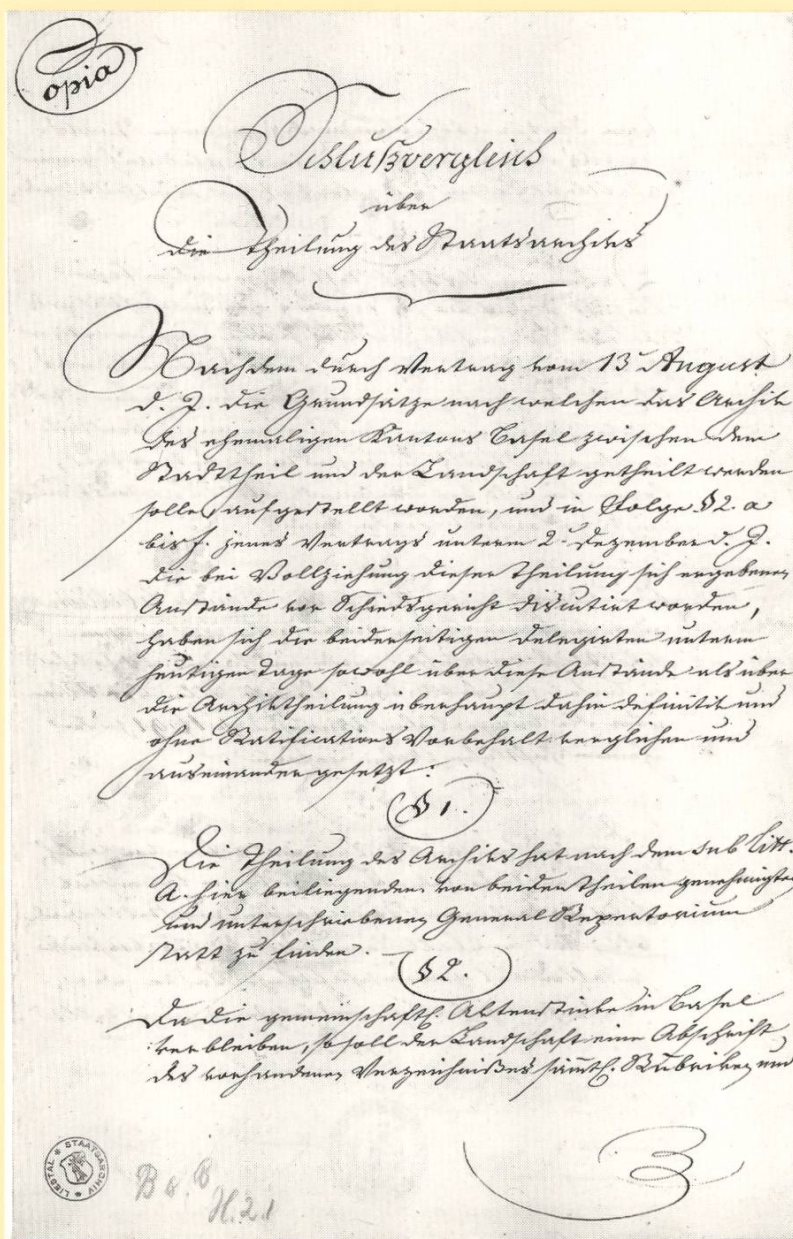 Copia
Schlußvergleich
über
Die Theilung des Staatsarchivs
Nachdem durch Vertrag vom 13 August
d. J. die Grundsätze nach welchen das Archiv
des ehemaligen Kantons Basel zwischen dem
Stadttheil und der Landschaft getheilt werden
solle, aufgestellt worden, und in Folge §2. a
bis f. jenes Vertrags unterm 2. Dezember d. J.
die bei Vollziehung dieser Theilung sich ergebenen
Anstände vor Schiedsgericht discutirt worden,
haben sich die beiderseitigen Delegirten unterm
heutigen Tage sowohl über diese Anstände als über
die Archivtheilung überhaupt dahin definitiv und
ohne Ratifications Vorbehalt verglichen und
auseinander gesetzt:
§ 1.
Die Theilung des Archivs hat nach dem sub Litt.
A. hier beiliegenden von beiden Theilen genehmigten
und unterschriebenen General Repertorium
statt zu finden. —
§ 2.
Da die gemeinschaftl. Aktenstücke in Basel
verbleiben, so soll der Landschaft eine Abschrift
des vorhandenen Verzeichnißes sämtl. Rubriken und
LIESTAL * STAATSARCHIV *
H. 2.